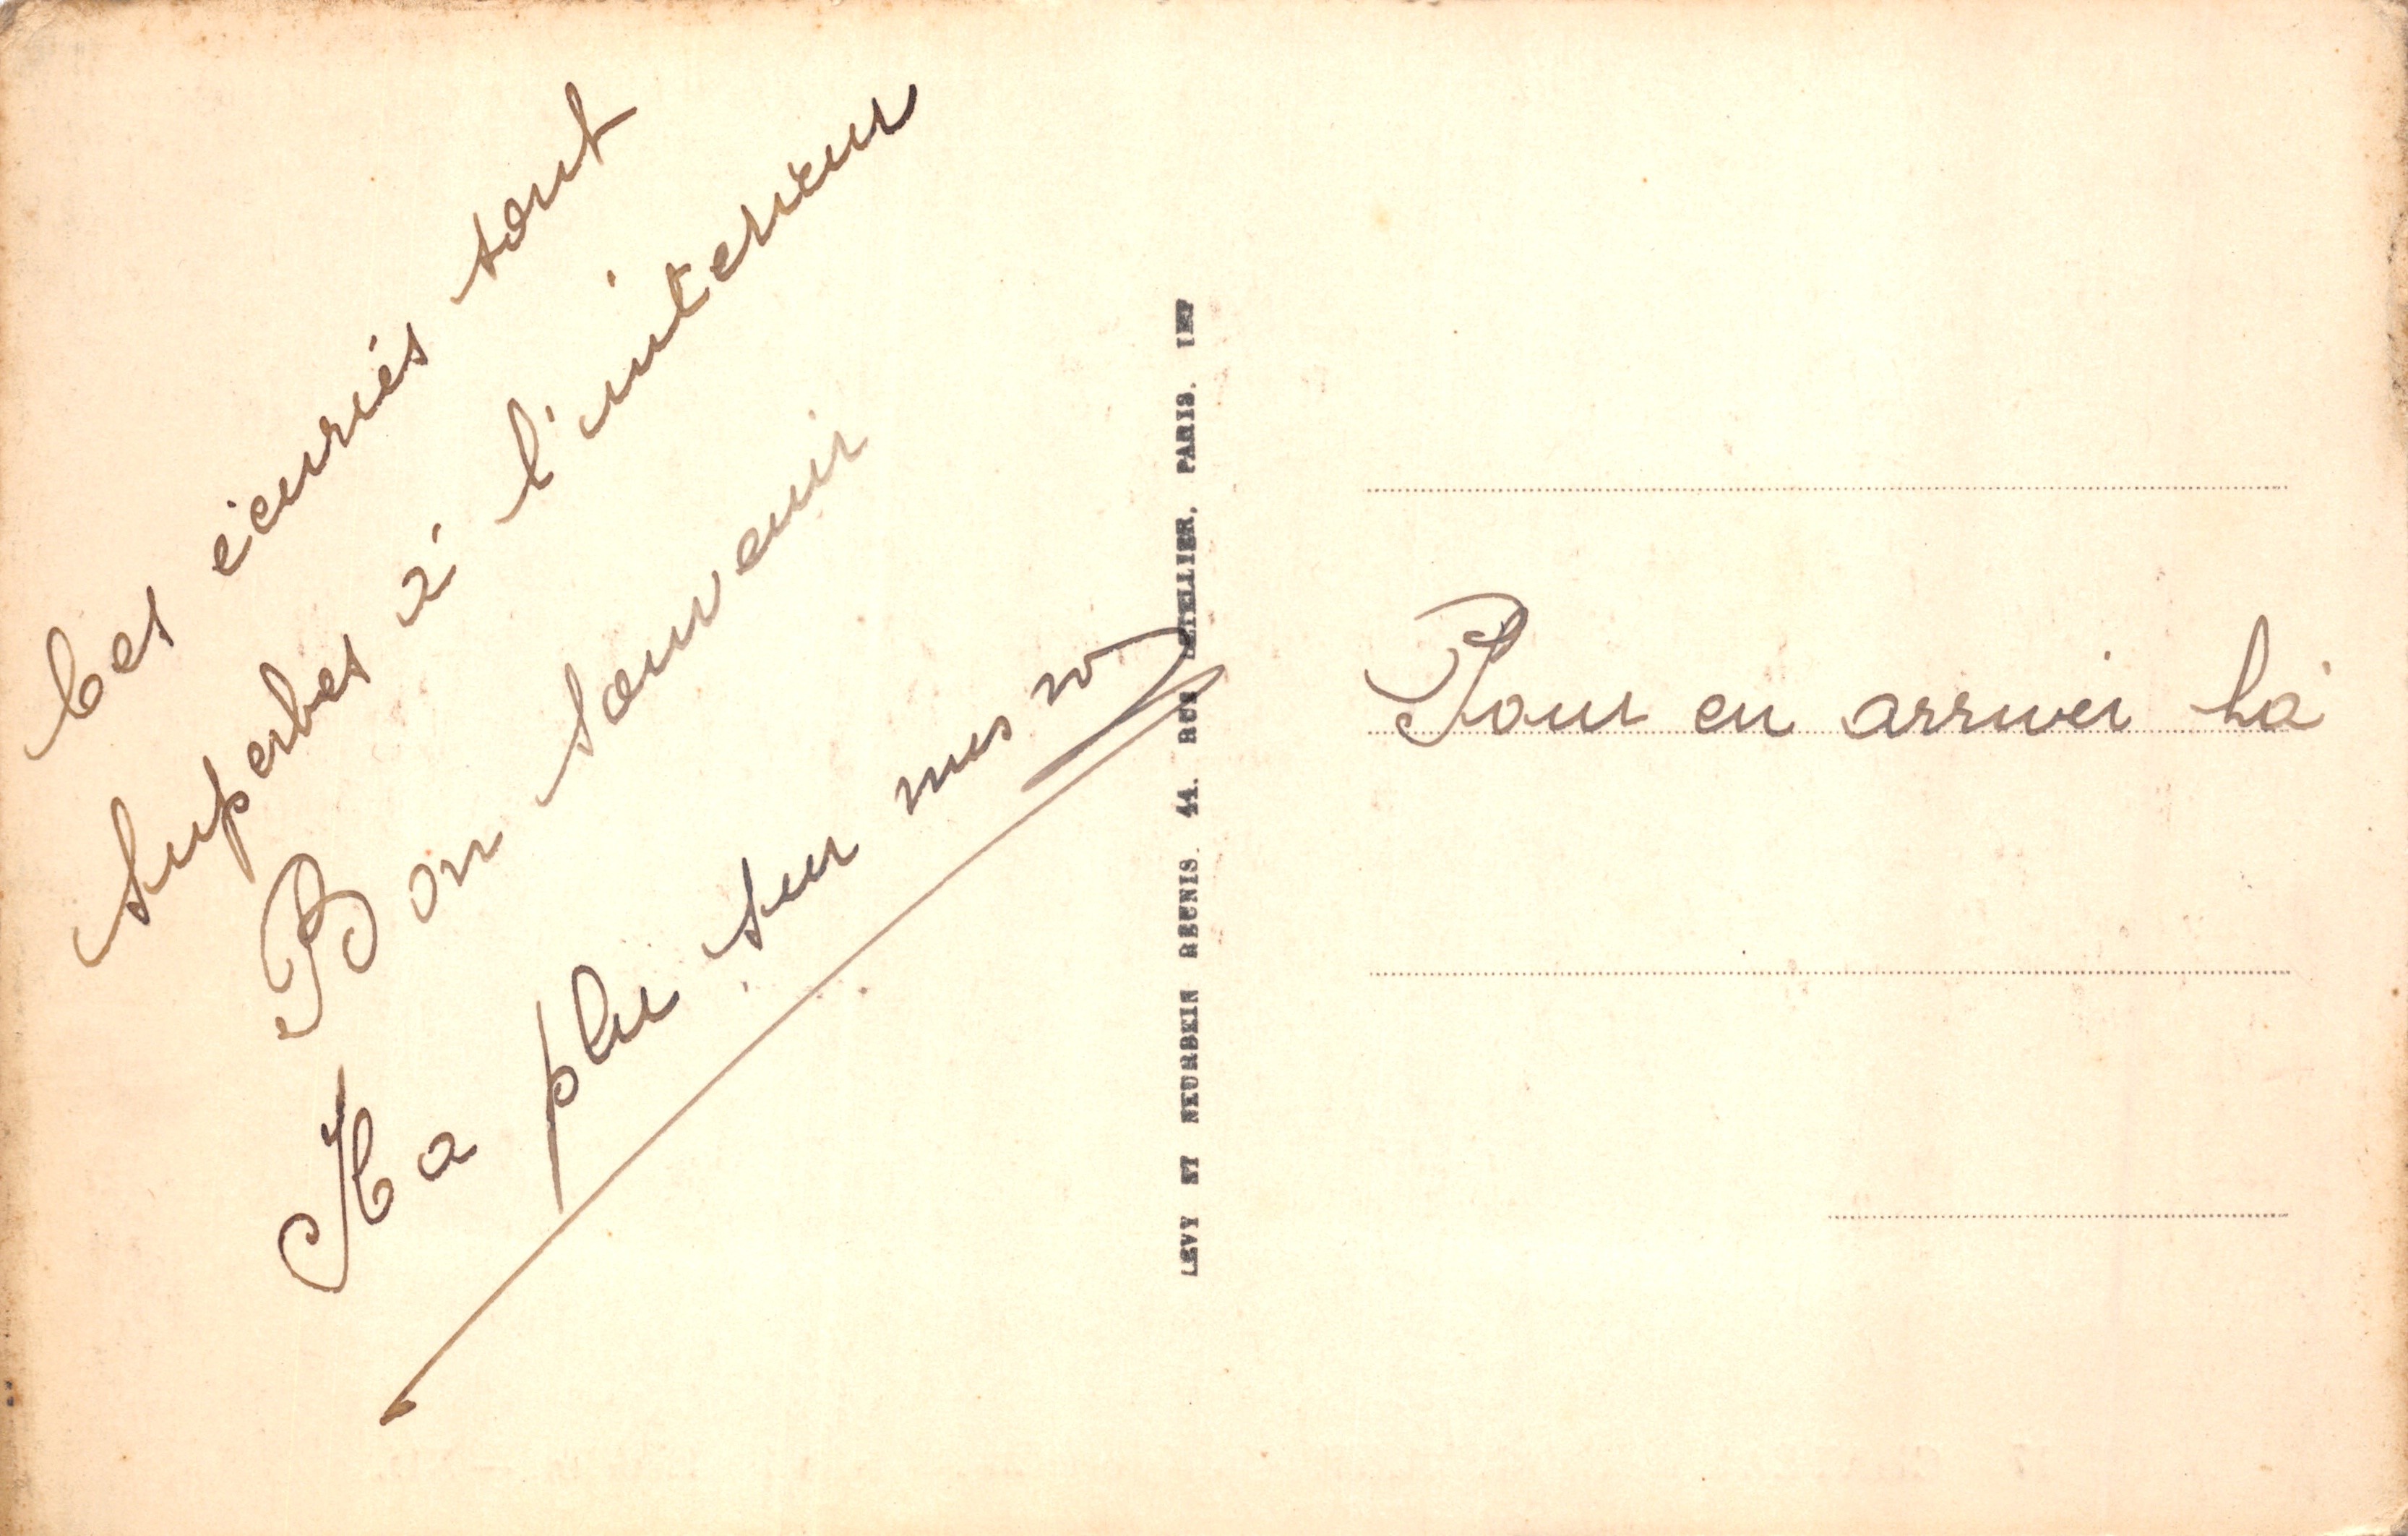 Ces écuries sont
superbes à l'interieur
Bon souvenir
Il a plu sur mes
LEVY ET NEURDEIN REUNIS. 44. RUE LETELLIER, PARIS. IMP
Pour en arriver là